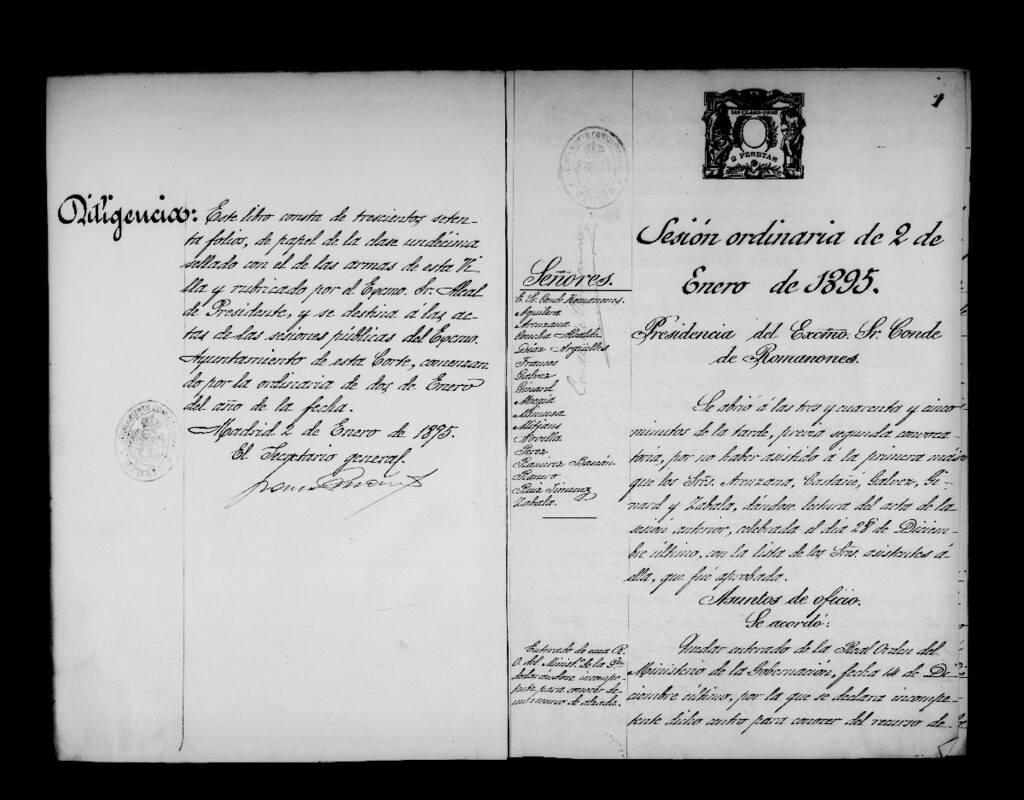 Diligencia: Este libro consta de trescientos, seten-
ta folios, de papel de la clase undécima
sellado con el de las armas de esta Vi
lla y rubricado por el Excmo. Sr. Alcal
de Presidente, y se destina á las ac-
tas de las sesiones públicas del Excmo.
Ayuntamiento de esta Corte, comenzan
do por la ordinaria de dos de Enero
del año de la fecha.
Madrid 2 de Enero de 1895.
El Secretario general.
1
2 PESETAS
Sesión ordinaria de 2 de
Enero de 1895.
Presidencia del Excmo. Sr. Conde
de Romanones.
Señores.
E. Sr. Conde Romanones.
Aguilera
Aruzana
Concha Alcalde
Díaz Argüelles
Francos
Galvez
Ginard
Mejia
Minuesa
Mitjans
Novella
Perez
Ramirez Bascán
Ranero
Ruiz Jimenez
Zabala.
Se abrió á las tres y cuarenta y cinco
minutos de la tarde, previa segunda convoca-
toria, por no haber asistido á la primera más
que los Srés. Aruzana, Castañé, Galvez, Gi-
nard y Zabala, dándose lectura del acta de la
sesión anterior, celebrada el dia 28 de Diciem-
bre último, con la lista de los Srés. asistentes á
ella, que fué aprobada.
Asuntos de oficio.
Se acordó:
Enterado de una R.
O. del Minist.º de la Go-
declarándose incompe-
tente para conocer de
un recurso de alzada.
Quedar enterado de la Real Orden del
Ministerio de la Gobernación, fecha 14 de Di-
ciembre último, por la que se declara incompe-
tente dicho centro para conocer del recurso de